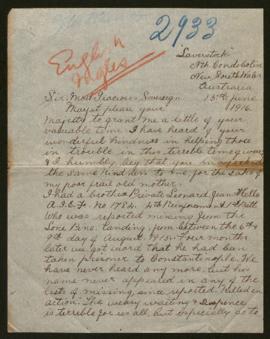 2933
English
"Laverstock"
Nth Condobolin
New South Wales
Australia
13th June
1916.
Sir. Most Gracious Sovereign.
May it please your
Majesty to grant me a little of your
valuable time. I have heard of your
wonderful kindness in helping those
in trouble in this terrible times
& I humbly beg that you
the same kindness to me for the sake of
my poor frail old mother.
I had a brother Private Leonard
A.I.F. No. 1782. 4th
Who was reported missing from the
Lone Pine landing, between the 6th &
9th day of August 1915. Four months
later we got word that he had been
taken prisoner to Constantinople. We
have never heard any more, but his
name never appeared in any of the
lists of missing, since reported killed in
action. The weary waiting & suspence
is terrible for us all, but especially so to